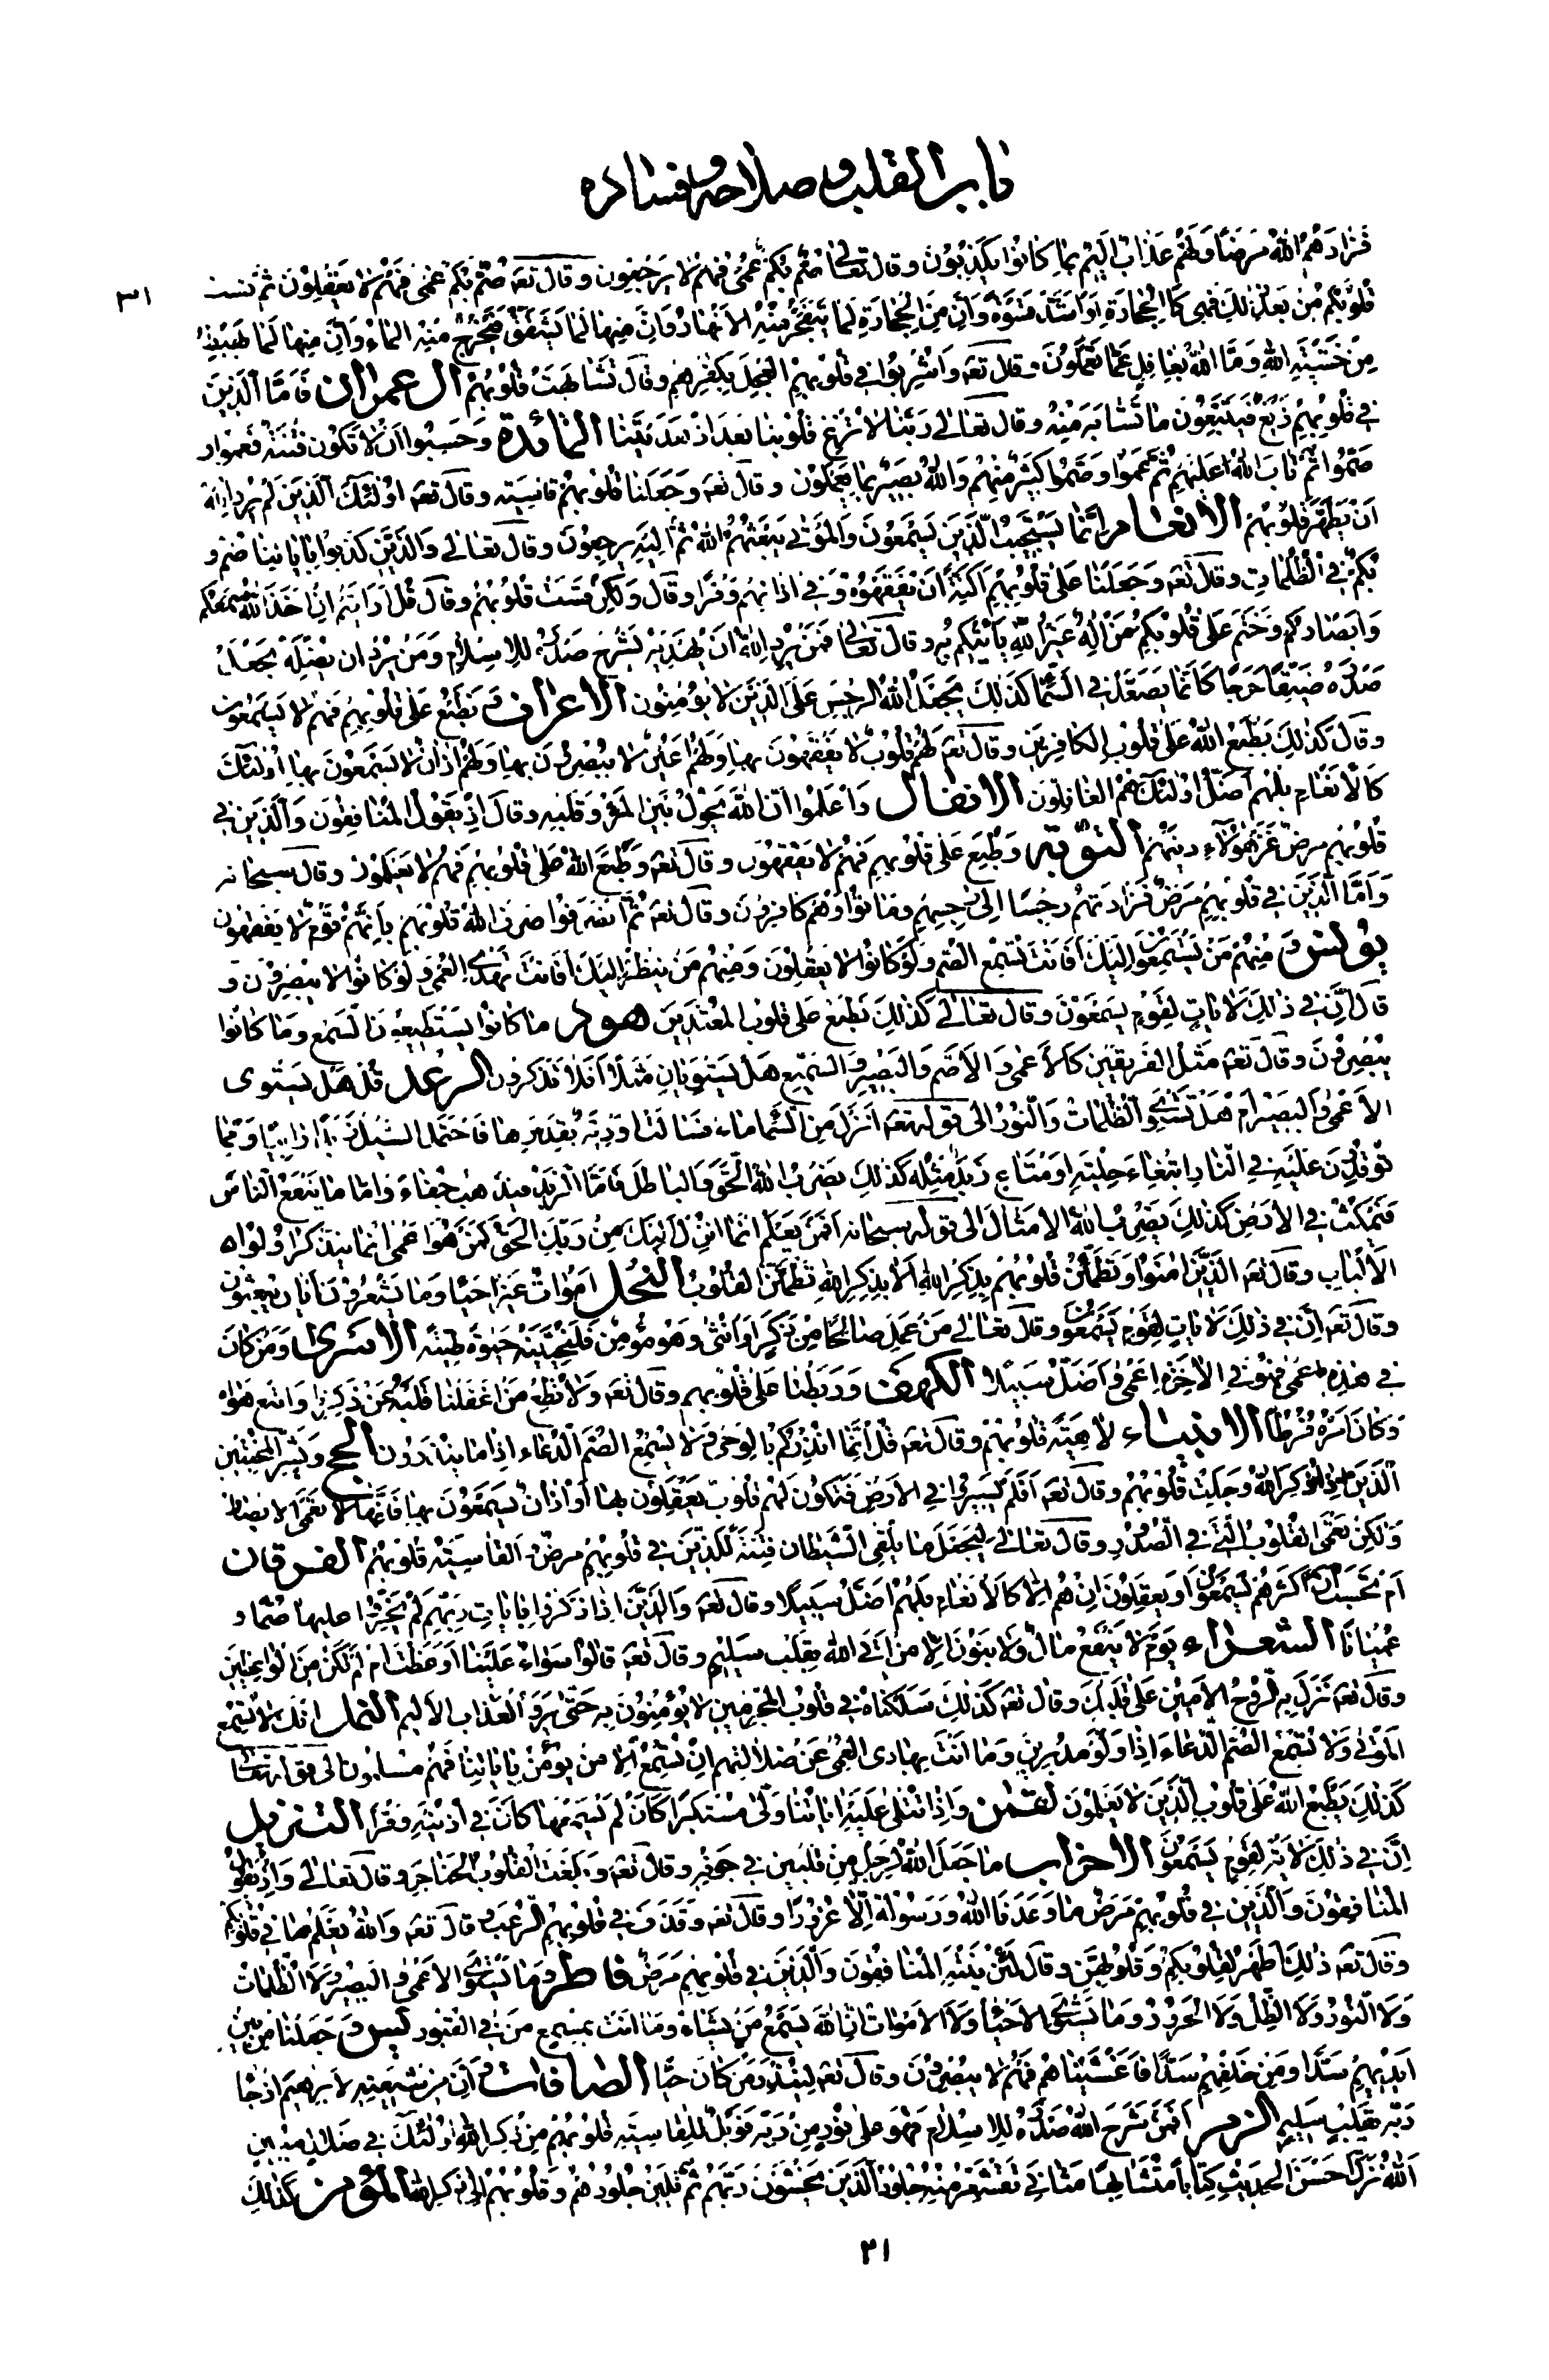 باب القلب و صلاحه و فساده
فَزَادَهُمُ اللهُ مَرَضًا وَلَهُمْ عَذَابٌ أَلِيمٌ بِمَا كَانُوا يَكْذِبُونَ وقال تعالى صُمٌّ بُكْمٌ عُمْيٌ فَهُمْ لَا يَرْجِعُونَ وقال تعه صُمٌّ بُكْمٌ عُمْيٌ فَهُمْ لَا يَعْقِلُونَ ثُمَّ قست
٣١
قُلُوبُكُمْ مِنْ بَعْدِ ذَلِكَ فَهِيَ كَالْحِجَارَةِ أَوْ أَشَدُّ قَسْوَةً وَإِنَّ مِنَ الْحِجَارَةِ لَمَا يَتَفَجَّرُ مِنْهُ الْأَنْهَارُ وَإِنَّ مِنْهَا لَمَا يَشَّقَّقُ فَيَخْرُجُ مِنْهُ الْمَاءُ وَإِنَّ مِنْهَا لَمَا يَهْبِطُ
مِنْ خَشْيَةِ اللهِ وَمَا اللهُ بِغَافِلٍ عَمَّا تَعْمَلُونَ وقال تعه وَأُشْرِبُوا فِي قُلُوبِهِمُ الْعِجْلَ بِكُفْرِهِمْ وقال تَشَابَهَتْ قُلُوبُهُمْ آل عمران فَأَمَّا الَّذِينَ
فِي قُلُوبِهِمْ زَيْغٌ فَيَتَّبِعُونَ مَا تَشَابَهَ مِنْهُ وقال تعالى رَبَّنَا لَا تُزِغْ قُلُوبَنَا بَعْدَ إِذْ هَدَيْتَنَا المائدة وَحَسِبُوا أَنْ لَا تَكُونَ فِتْنَةٌ فَعَمُوا و
صَمُّوا ثُمَّ تَابَ اللهُ عَلَيْهِمْ ثُمَّ عَمُوا وَصَمُّوا كَثِيرٌ مِنْهُمْ وَاللهُ بَصِيرٌ بِمَا يَعْمَلُونَ وقال تعه وَجَعَلْنَا قُلُوبَهُمْ قَاسِيَةً وقال تعه أُولَئِكَ الَّذِينَ لَمْ يُرِدِ اللهُ
أَنْ يُطَهِّرَ قُلُوبَهُمْ الأنعام إِنَّمَا يَسْتَجِيبُ الَّذِينَ يَسْمَعُونَ وَالْمَوْتَى يَبْعَثُهُمُ اللهُ ثُمَّ إِلَيْهِ يُرْجَعُونَ وقال تعالى وَالَّذِينَ كَذَّبُوا بِآيَاتِنَا صُمٌّ و
بُكْمٌ فِي الظُّلُمَاتِ وقال تعه وَجَعَلْنَا عَلَى قُلُوبِهِمْ أَكِنَّةً أَنْ يَفْقَهُوهُ وَفِي آذَانِهِمْ وَقْرًا وقال وَلَكِنْ قَسَتْ قُلُوبُهُمْ وقال قُلْ أَرَأَيْتُمْ إِنْ أَخَذَ اللهُ سَمْعَكُمْ
وَأَبْصَارَكُمْ وَخَتَمَ عَلَى قُلُوبِكُمْ مَنْ إِلَهٌ غَيْرُ اللهِ يَأْتِيكُمْ بِهِ وقال تعالى فَمَنْ يُرِدِ اللهُ أَنْ يَهْدِيَهُ يَشْرَحْ صَدْرَهُ لِلْإِسْلَامِ وَمَنْ يُرِدْ أَنْ يُضِلَّهُ يَجْعَلْ
صَدْرَهُ ضَيِّقًا حَرَجًا كَأَنَّمَا يَصَّعَّدُ فِي السَّمَاءِ كَذَلِكَ يَجْعَلُ اللهُ الرِّجْسَ عَلَى الَّذِينَ لَا يُؤْمِنُونَ الأعراف وَنَطْبَعُ عَلَى قُلُوبِهِمْ فَهُمْ لَا يَسْمَعُونَ
وقال كَذَلِكَ يَطْبَعُ اللهُ عَلَى قُلُوبِ الْكَافِرِينَ وقال تعه لَهُمْ قُلُوبٌ لَا يَفْقَهُونَ بِهَا وَلَهُمْ أَعْيُنٌ لَا يُبْصِرُونَ بِهَا وَلَهُمْ آذَانٌ لَا يَسْمَعُونَ بِهَا أُولَئِكَ
كَالْأَنْعَامِ بَلْ هُمْ أَضَلُّ أُولَئِكَ هُمُ الْغَافِلُونَ الأنفال وَاعْلَمُوا أَنَّ اللهَ يَحُولُ بَيْنَ الْمَرْءِ وَقَلْبِهِ وقال إِذْ يَقُولُ الْمُنَافِقُونَ وَالَّذِينَ فِي
قُلُوبِهِمْ مَرَضٌ غَرَّ هَؤُلَاءِ دِينُهُمْ التوبة وَطُبِعَ عَلَى قُلُوبِهِمْ فَهُمْ لَا يَفْقَهُونَ وقال تعه وَطَبَعَ اللهُ عَلَى قُلُوبِهِمْ فَهُمْ لَا يَعْلَمُونَ وقال سبحانه
وَأَمَّا الَّذِينَ فِي قُلُوبِهِمْ مَرَضٌ فَزَادَتْهُمْ رِجْسًا إِلَى رِجْسِهِمْ وَمَاتُوا وَهُمْ كَافِرُونَ وقال تعه ثُمَّ انْصَرَفُوا صَرَفَ اللهُ قُلُوبَهُمْ بِأَنَّهُمْ قَوْمٌ لَا يَفْقَهُونَ
يونس وَمِنْهُمْ مَنْ يَسْتَمِعُونَ إِلَيْكَ أَفَأَنْتَ تُسْمِعُ الصُّمَّ وَلَوْ كَانُوا لَا يَعْقِلُونَ وَمِنْهُمْ مَنْ يَنْظُرُ إِلَيْكَ أَفَأَنْتَ تَهْدِي الْعُمْيَ وَلَوْ كَانُوا لَا يُبْصِرُونَ و
قال إِنَّ فِي ذَلِكَ لَآيَاتٍ لِقَوْمٍ يَسْمَعُونَ وقال تعالى كَذَلِكَ نَطْبَعُ عَلَى قُلُوبِ الْمُعْتَدِينَ هود مَا كَانُوا يَسْتَطِيعُونَ السَّمْعَ وَمَا كَانُوا
يُبْصِرُونَ وقال تعه مَثَلُ الْفَرِيقَيْنِ كَالْأَعْمَى وَالْأَصَمِّ وَالْبَصِيرِ وَالسَّمِيعِ هَلْ يَسْتَوِيَانِ مَثَلًا أَفَلَا تَذَكَّرُونَ الرعد قُلْ هَلْ يَسْتَوِي
الْأَعْمَى وَالْبَصِيرُ أَمْ هَلْ تَسْتَوِي الظُّلُمَاتُ وَالنُّورُ الى قوله تعه أَنْزَلَ مِنَ السَّمَاءِ مَاءً فَسَالَتْ أَوْدِيَةٌ بِقَدَرِهَا فَاحْتَمَلَ السَّيْلُ زَبَدًا رَابِيًا وَمِمَّا
تُوقِدُونَ عَلَيْهِ فِي النَّارِ ابْتِغَاءَ حِلْيَةٍ أَوْ مَتَاعٍ زَبَدٌ مِثْلُهُ كَذَلِكَ يَضْرِبُ اللهُ الْحَقَّ وَالْبَاطِلَ فَأَمَّا الزَّبَدُ فَيَذْهَبُ جُفَاءً وَأَمَّا مَا يَنْفَعُ النَّاسَ
فَيَمْكُثُ فِي الْأَرْضِ كَذَلِكَ يَضْرِبُ اللهُ الْأَمْثَالَ الى قوله سبحانه أَفَمَنْ يَعْلَمُ أَنَّمَا أُنْزِلَ إِلَيْكَ مِنْ رَبِّكَ الْحَقُّ كَمَنْ هُوَ أَعْمَى إِنَّمَا يَتَذَكَّرُ أُولُوا
الْأَلْبَابِ وقال تعه الَّذِينَ آمَنُوا وَتَطْمَئِنُّ قُلُوبُهُمْ بِذِكْرِ اللهِ أَلَا بِذِكْرِ اللهِ تَطْمَئِنُّ الْقُلُوبُ النحل أَمْوَاتٌ غَيْرُ أَحْيَاءٍ وَمَا يَشْعُرُونَ أَيَّانَ يُبْعَثُونَ
وقال تعه إِنَّ فِي ذَلِكَ لَآيَاتٍ لِقَوْمٍ يَسْمَعُونَ وقال تعالى مَنْ عَمِلَ صَالِحًا مِنْ ذَكَرٍ أَوْ أُنْثَى وَهُوَ مُؤْمِنٌ فَلَنُحْيِيَنَّهُ حَيَوةً طَيِّبَةً الأسرى وَمَنْ كَانَ
فِي هَذِهِ أَعْمَى فَهُوَ فِي الْآخِرَةِ أَعْمَى وَأَضَلُّ سَبِيلًا الكهف وَرَبَطْنَا عَلَى قُلُوبِهِمْ وقال تعه وَلَا تُطِعْ مَنْ أَغْفَلْنَا قَلْبَهُ عَنْ ذِكْرِنَا وَاتَّبَعَ هَوَاهُ
وَكَانَ أَمْرُهُ فُرُطًا الأنبياء لَاهِيَةً قُلُوبُهُمْ وقال تعه قُلْ إِنَّمَا أُنْذِرُكُمْ بِالْوَحْيِ وَلَا يَسْمَعُ الصُّمُّ الدُّعَاءَ إِذَا مَا يُنْذَرُونَ الحج وَبَشِّرِ الْمُخْبِتِينَ
الَّذِينَ إِذَا ذُكِرَ اللهُ وَجِلَتْ قُلُوبُهُمْ وقال تعه أَفَلَمْ يَسِيرُوا فِي الْأَرْضِ فَتَكُونَ لَهُمْ قُلُوبٌ يَعْقِلُونَ بِهَا أَوْ آذَانٌ يَسْمَعُونَ بِهَا فَإِنَّهَا لَا تَعْمَى الْأَبْصَارُ
وَلَكِنْ تَعْمَى الْقُلُوبُ الَّتِي فِي الصُّدُورِ وقال تعالى لِيَجْعَلَ مَا يُلْقِي الشَّيْطَانُ فِتْنَةً لِلَّذِينَ فِي قُلُوبِهِمْ مَرَضٌ وَالْقَاسِيَةِ قُلُوبُهُمْ الفرقان
أَمْ تَحْسَبُ أَنَّ أَكْثَرَهُمْ يَسْمَعُونَ أَوْ يَعْقِلُونَ إِنْ هُمْ إِلَّا كَالْأَنْعَامِ بَلْ هُمْ أَضَلُّ سَبِيلًا وقال تعه وَالَّذِينَ إِذَا ذُكِّرُوا بِآيَاتِ رَبِّهِمْ لَمْ يَخِرُّوا عَلَيْهَا صُمًّا و
عُمْيَانًا الشعراء يَوْمَ لَا يَنْفَعُ مَالٌ وَلَا بَنُونَ إِلَّا مَنْ أَتَى اللهَ بِقَلْبٍ سَلِيمٍ وقال تعه قَالُوا سَوَاءٌ عَلَيْنَا أَوَعَظْتَ أَمْ لَمْ تَكُنْ مِنَ الْوَاعِظِينَ
وقال تعه نَزَلَ بِهِ الرُّوحُ الْأَمِينُ عَلَى قَلْبِكَ وقال تعه كَذَلِكَ سَلَكْنَاهُ فِي قُلُوبِ الْمُجْرِمِينَ لَا يُؤْمِنُونَ بِهِ حَتَّى يَرَوُا الْعَذَابَ الْأَلِيمَ النمل إِنَّكَ لَا تُسْمِعُ
الْمَوْتَى وَلَا تُسْمِعُ الصُّمَّ الدُّعَاءَ إِذَا وَلَّوْا مُدْبِرِينَ وَمَا أَنْتَ بِهَادِي الْعُمْيِ عَنْ ضَلَالَتِهِمْ إِنْ تُسْمِعُ إِلَّا مَنْ يُؤْمِنُ بِآيَاتِنَا فَهُمْ مُسْلِمُونَ الى قوله تعالى
كَذَلِكَ يَطْبَعُ اللهُ عَلَى قُلُوبِ الَّذِينَ لَا يَعْلَمُونَ لقمن وَإِذَا تُتْلَى عَلَيْهِ آيَاتُنَا وَلَّى مُسْتَكْبِرًا كَأَنْ لَمْ يَسْمَعْهَا كَأَنَّ فِي أُذُنَيْهِ وَقْرًا التنزيل
إِنَّ فِي ذَلِكَ لَآيَةً لِقَوْمٍ يَسْمَعُونَ الأحزاب مَا جَعَلَ اللهُ لِرَجُلٍ مِنْ قَلْبَيْنِ فِي جَوْفِهِ وقال تعه وَبَلَغَتِ الْقُلُوبُ الْحَنَاجِرَ وقال تعالى وَإِذْ يَقُولُ
الْمُنَافِقُونَ وَالَّذِينَ فِي قُلُوبِهِمْ مَرَضٌ مَا وَعَدَنَا اللهُ وَرَسُولُهُ إِلَّا غُرُورًا وقال تعه وَقَذَفَ فِي قُلُوبِهِمُ الرُّعْبَ وقال تعه وَاللهُ يَعْلَمُ مَا فِي قُلُوبِكُمْ
وقال تعه ذَلِكُمْ أَطْهَرُ لِقُلُوبِكُمْ وَقُلُوبِهِنَّ وقال لَئِنْ لَمْ يَنْتَهِ الْمُنَافِقُونَ وَالَّذِينَ فِي قُلُوبِهِمْ مَرَضٌ فاطر وَمَا يَسْتَوِي الْأَعْمَى وَالْبَصِيرُ وَلَا الظُّلُمَاتُ
وَلَا النُّورُ وَلَا الظِّلُّ وَلَا الْحَرُورُ وَمَا يَسْتَوِي الْأَحْيَاءُ وَلَا الْأَمْوَاتُ إِنَّ اللهَ يُسْمِعُ مَنْ يَشَاءُ وَمَا أَنْتَ بِمُسْمِعٍ مَنْ فِي الْقُبُورِ يس وَجَعَلْنَا مِنْ بَيْنِ
أَيْدِيهِمْ سَدًّا وَمِنْ خَلْفِهِمْ سَدًّا فَأَغْشَيْنَاهُمْ فَهُمْ لَا يُبْصِرُونَ وقال تعه لِيُنْذِرَ مَنْ كَانَ حَيًّا الصافات وَإِنَّ مِنْ شِيعَتِهِ لَإِبْرَهِيمَ إِذْ جَاءَ
رَبَّهُ بِقَلْبٍ سَلِيمٍ الزمر أَفَمَنْ شَرَحَ اللهُ صَدْرَهُ لِلْإِسْلَامِ فَهُوَ عَلَى نُورٍ مِنْ رَبِّهِ فَوَيْلٌ لِلْقَاسِيَةِ قُلُوبُهُمْ مِنْ ذِكْرِ اللهِ أُولَئِكَ فِي ضَلَالٍ مُبِينٍ
اللهُ نَزَّلَ أَحْسَنَ الْحَدِيثِ كِتَابًا مُتَشَابِهًا مَثَانِيَ تَقْشَعِرُّ مِنْهُ جُلُودُ الَّذِينَ يَخْشَوْنَ رَبَّهُمْ ثُمَّ تَلِينُ جُلُودُهُمْ وَقُلُوبُهُمْ إِلَى ذِكْرِ اللهِ المؤمن كَذَلِكَ
٣١